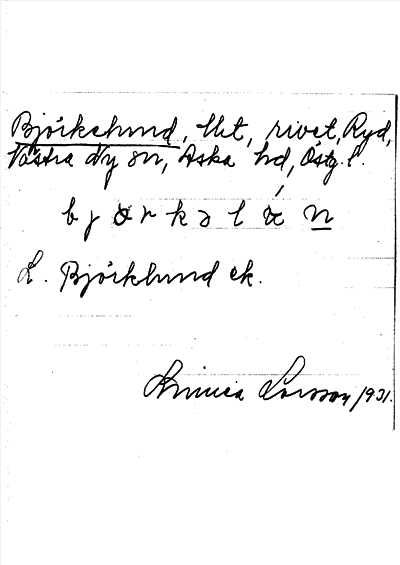 Björkelund, lht, rivet, Ryd,
Västra Ny sn, Aska hd, Östg. l.
b j ɵ r k ə l ú n
L. Björklund ek.
Linnea Larsson 1931.